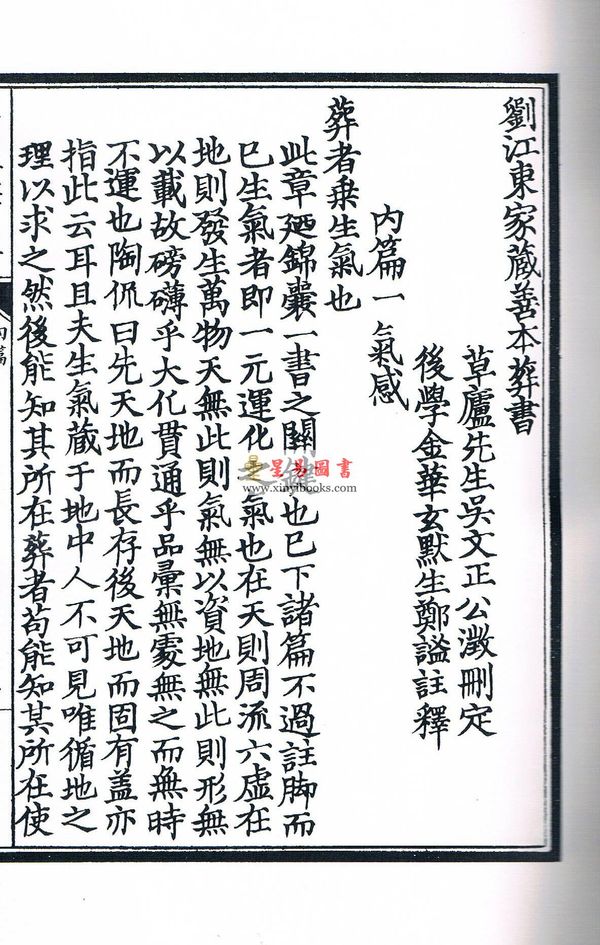 劉江東家藏善本葬書
草廬先生吳文正公澂刪定
後學金華玄默生鄭謐註釋
內篇一氣感
葬者乗生氣也
此章廼錦囊一書之關鍵也巳下諸篇不過註脚而
巳生氣者即一元運化之氣也在天則周流六虛在
地則發生萬物天無此則氣無以資地無此則形無
以載故磅礴乎大化貫通乎品彙無處無之而無時
不運也陶侃曰先天地而長存後天地而固有盖亦
指此云耳且夫生氣藏于地中人不可見唯循地之
理以求之然後能知其所在葬者苟能知其所在使
星易圖書
www.xinyibooks.com